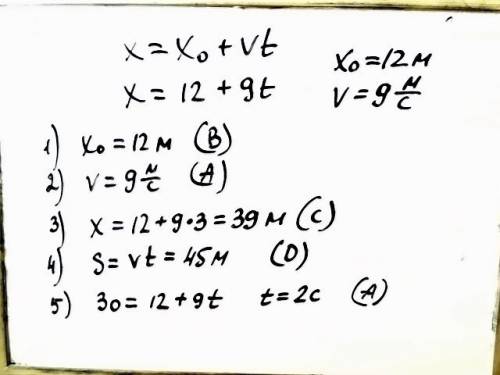 x = x₀ + vt
x₀ = 12 м
x = 12 + 9t
v = 9 м/с
1) x₀ = 12 м (B)
2) v = 9 м/с (A)
3) x = 12 + 9·3 = 39 м (C)
4) S = vt = 45 м (D)
5) 30 = 12 + 9t t = 2c (A)